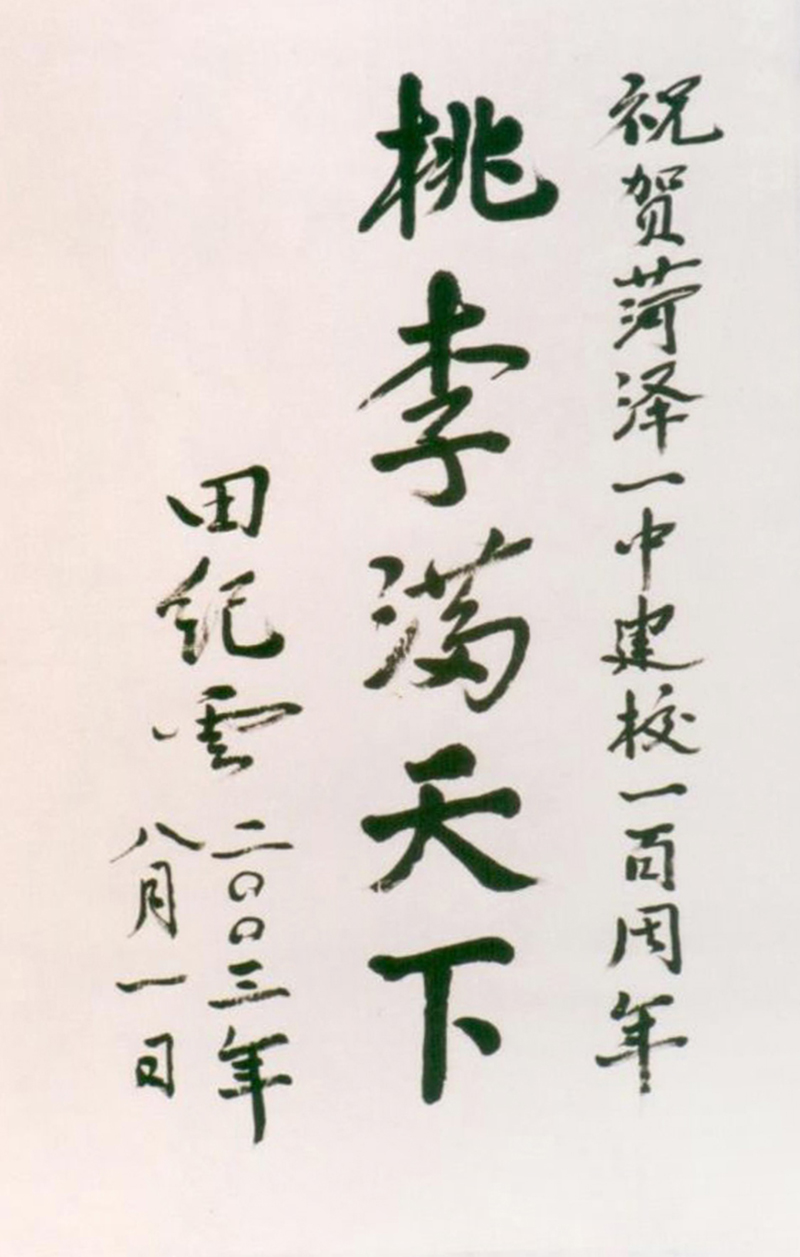 祝贺菏泽一中建校一百周年
桃李满天下
田纪雲
二〇〇三年
八月一日